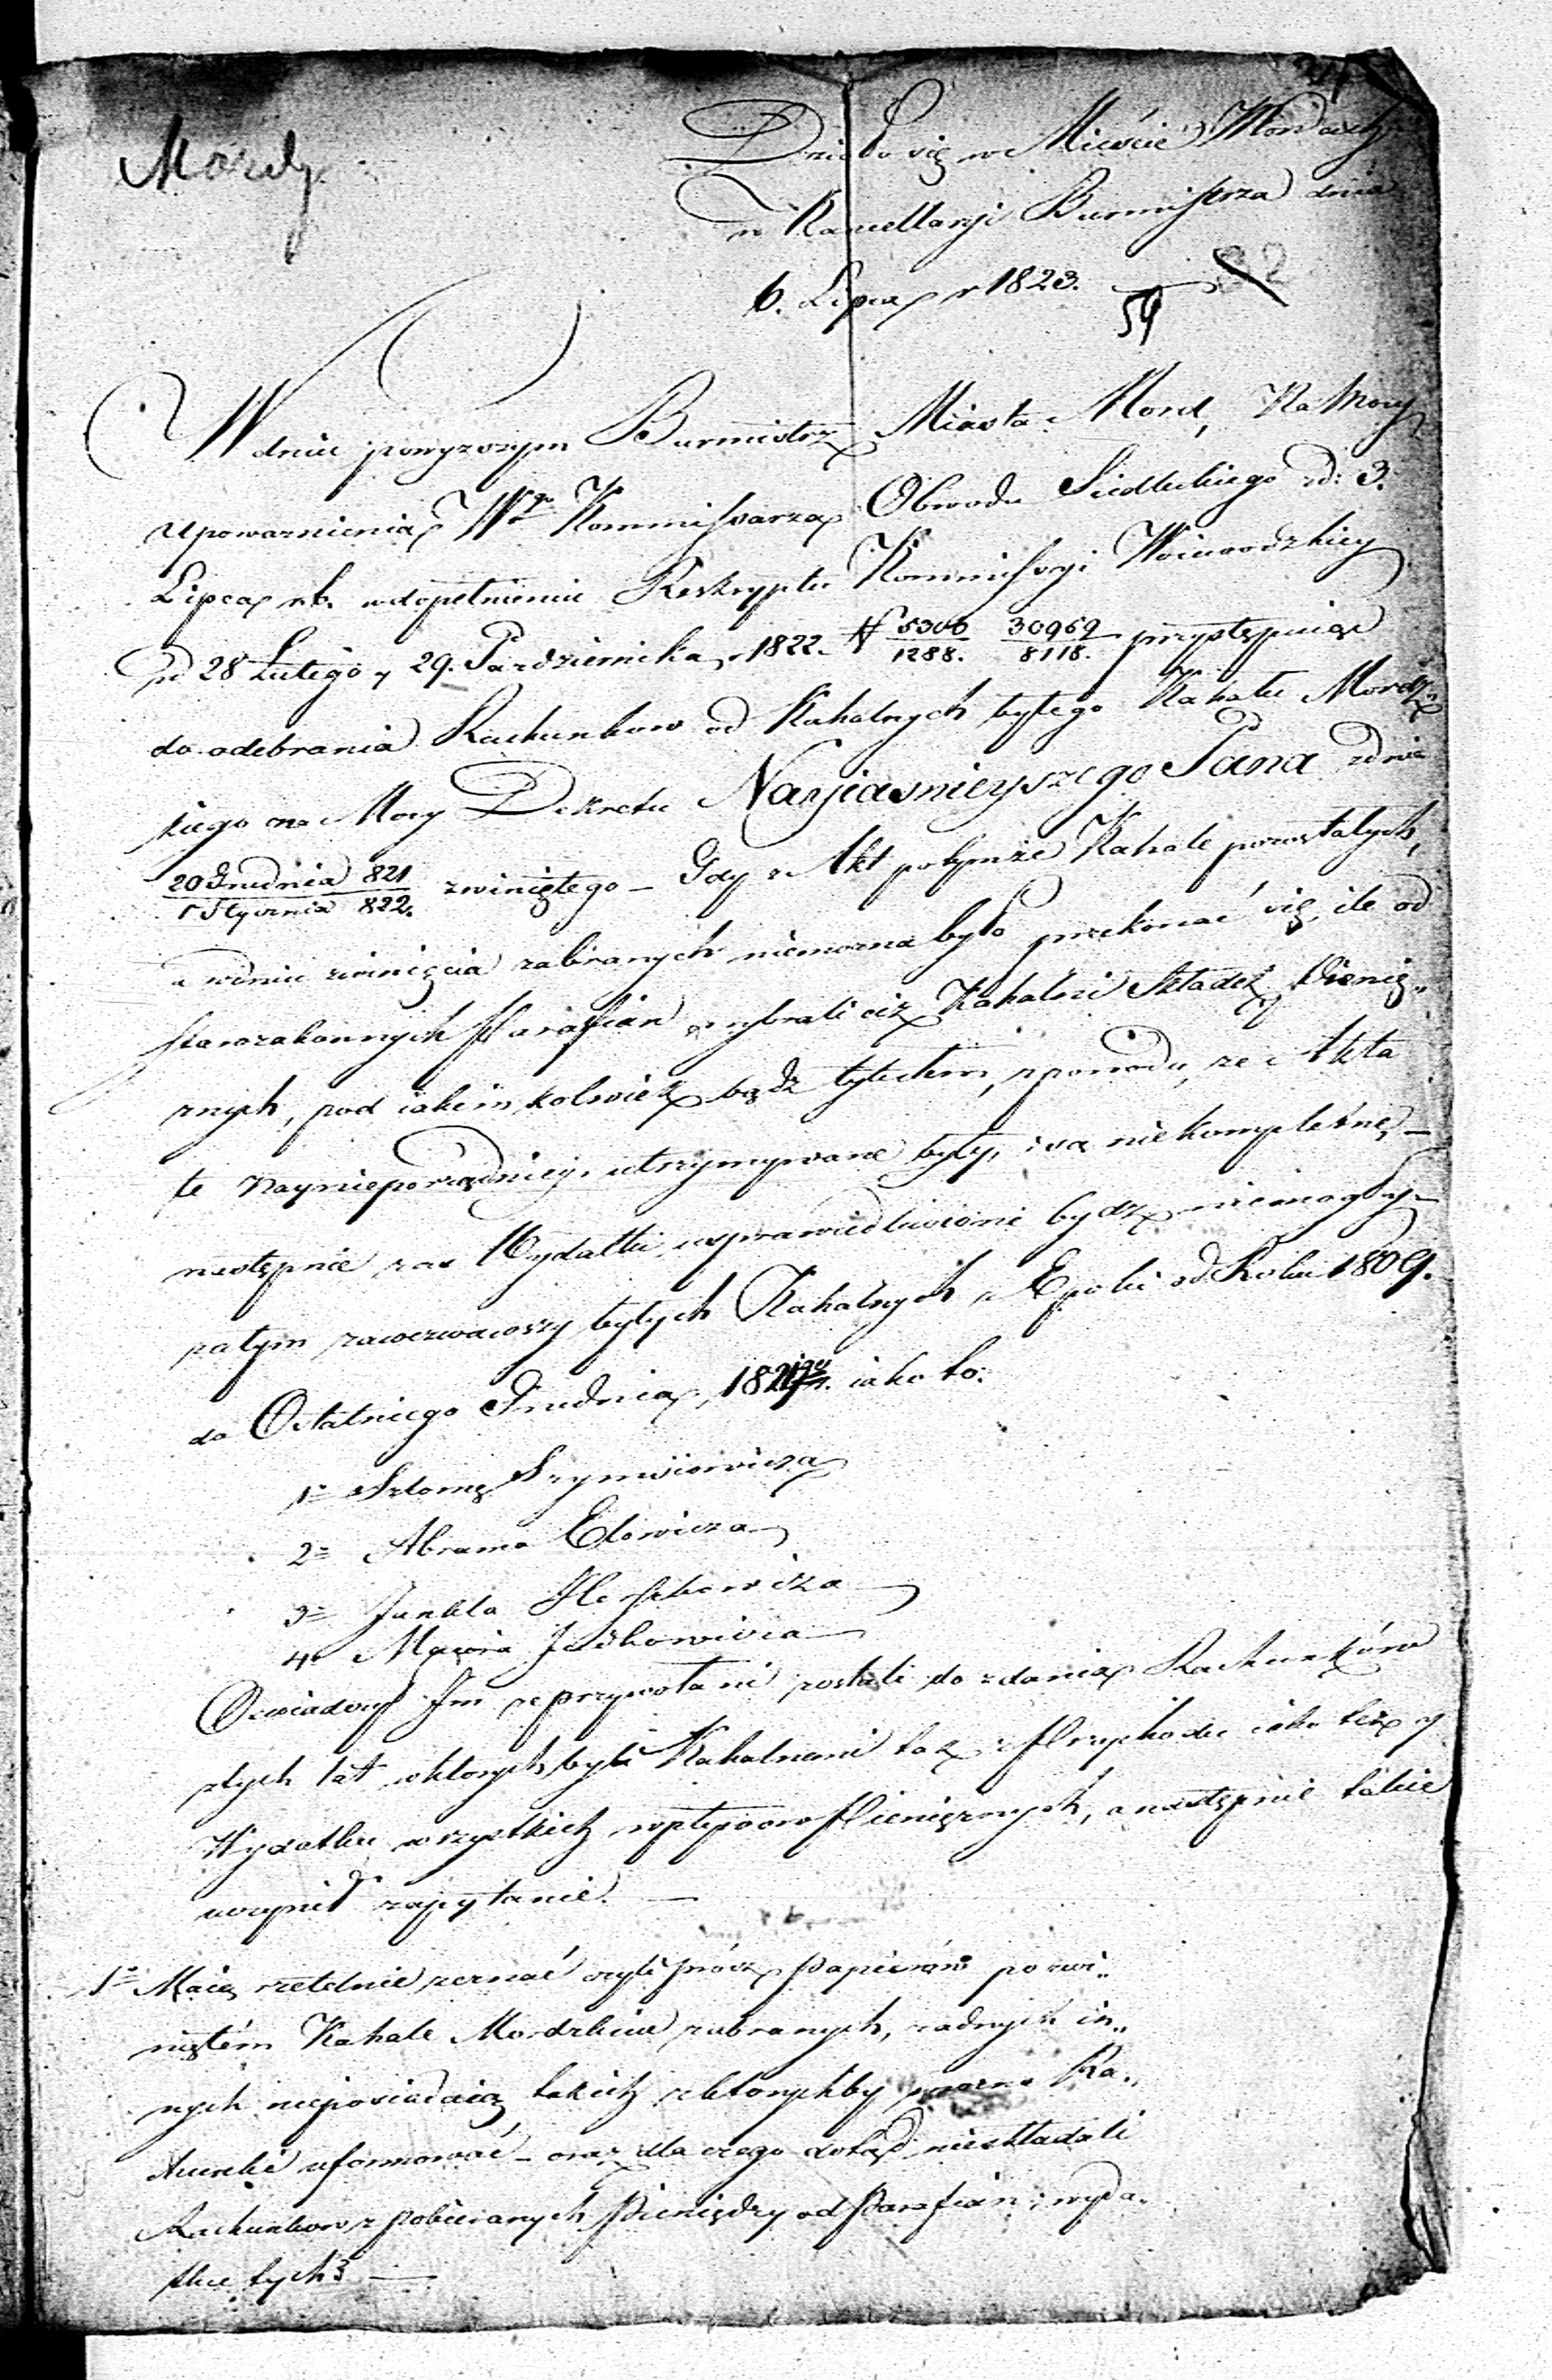 Mordy
Działo się w Mieście Mordach
w Kancellaryi Burmistrza dnia
6. Lipca r 1823.
59
32
W dniu powyzszym Burmistrz Miasta Mord, Na Mocy
upowaznienia Wgo Kommissarza Obwodu Siedleckiego zd: 3.
Lipca r.b. w dopełnieniu Reskryptu Kommissyi Woiewodzkiey
zd 28 Lutego y 29. Pazdziernika r 1822. N 5306/1288. 30969/8118. przystępuiąc
do odebrania Rachunkow od Kahalnych byłego Kahału Mordz„
kiego na Mocy Dekretu Nayjasnieyszego Pana z dnia
20 Grudnia 821/1 Stycznia 822. zwiniętego – Gdy z Akt po tymże Kahale pozostałych,
a w dniu zwinięcia zabranych niemozna było przekonać się, ile od
Starozakonnych Parafian wybrali ciż Kahalni Składek Pienię„
znych, pod iakimkolwiek bądź tytułem, z powodu, że Akta
te naynieporządniey utrzymywane były, i są niekompletne, –
następnie zas Wydatki usprawiedliwione bydz niemogły –
zatym zawezwawszy byłych Kahalnych z Epoki od Roku 1809.
do Ostatniego Grudnia 1821go r. iako to:
1o Szlomę Szymsiowicza
2o Abrama Elowicza
3o Jankla Herszkowicza
4o Jośkowicza
Oswiadczył Im ze przywołani zostali do zdania Rachunków
z tych lat w ktorych byli Kahalnemi tak z Przychodu iako też y
Wydatku wszystkich wpływow Pienięznych, a następnie takie
uczynił zapytanie. –
1o Maią rzetelnie zeznać czyli prócz Papierów po zwi„
niętém Kahale Mordzkim zabranych, zadnych in„
nych nieposiadaią takich z ktorychby mozna Ra„
chunki uformować – oraz dla czego dotąd nieskładali
Rachunkow z pobieranych Pieniędzy od Parafian i wyda„
tku tychż –